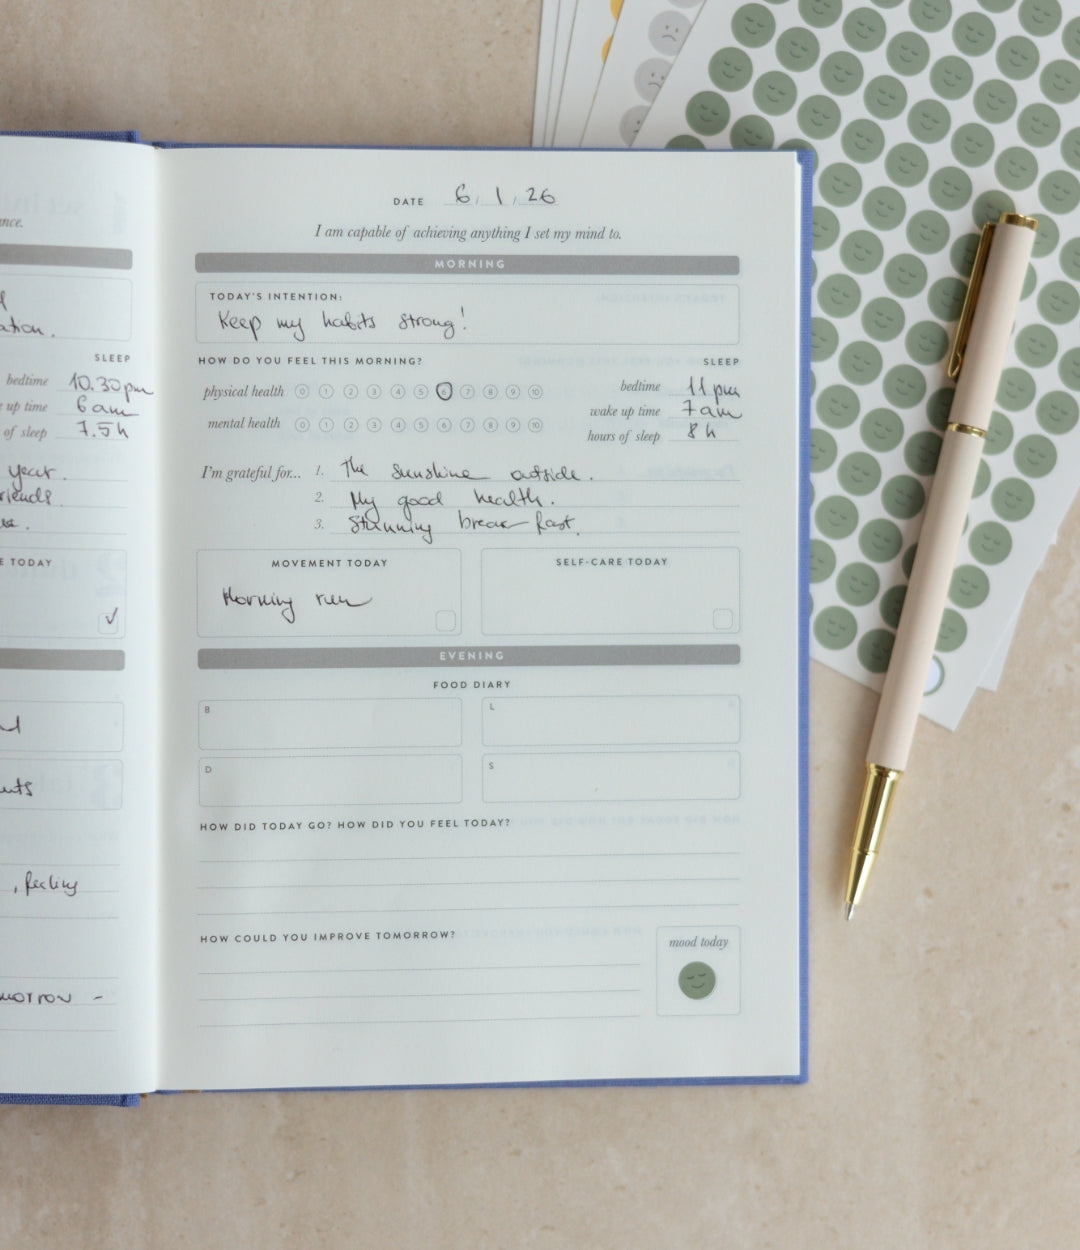 nce.
ation.
SLEEP
bedtime 10.30pm
up time 6am
of sleep 7.5h
year.
riends.
E TODAY
✓
, feeling
morrow -
DATE 6/1/26
I am capable of achieving anything I set my mind to.
MORNING
TODAY'S INTENTION:
Keep my habits strong!
HOW DO YOU FEEL THIS MORNING?
physical health 0 1 2 3 4 5 6 7 8 9 10
mental health 0 1 2 3 4 5 6 7 8 9 10
SLEEP
bedtime 11pm
wake up time 7am
hours of sleep 8h
I'm grateful for... 1. The sunshine outside.
2. My good health.
3. Stunning breakfast.
MOVEMENT TODAY
Morning run
SELF-CARE TODAY
EVENING
FOOD DIARY
B
L
D
S
HOW DID TODAY GO? HOW DID YOU FEEL TODAY?
HOW COULD YOU IMPROVE TOMORROW?
mood today